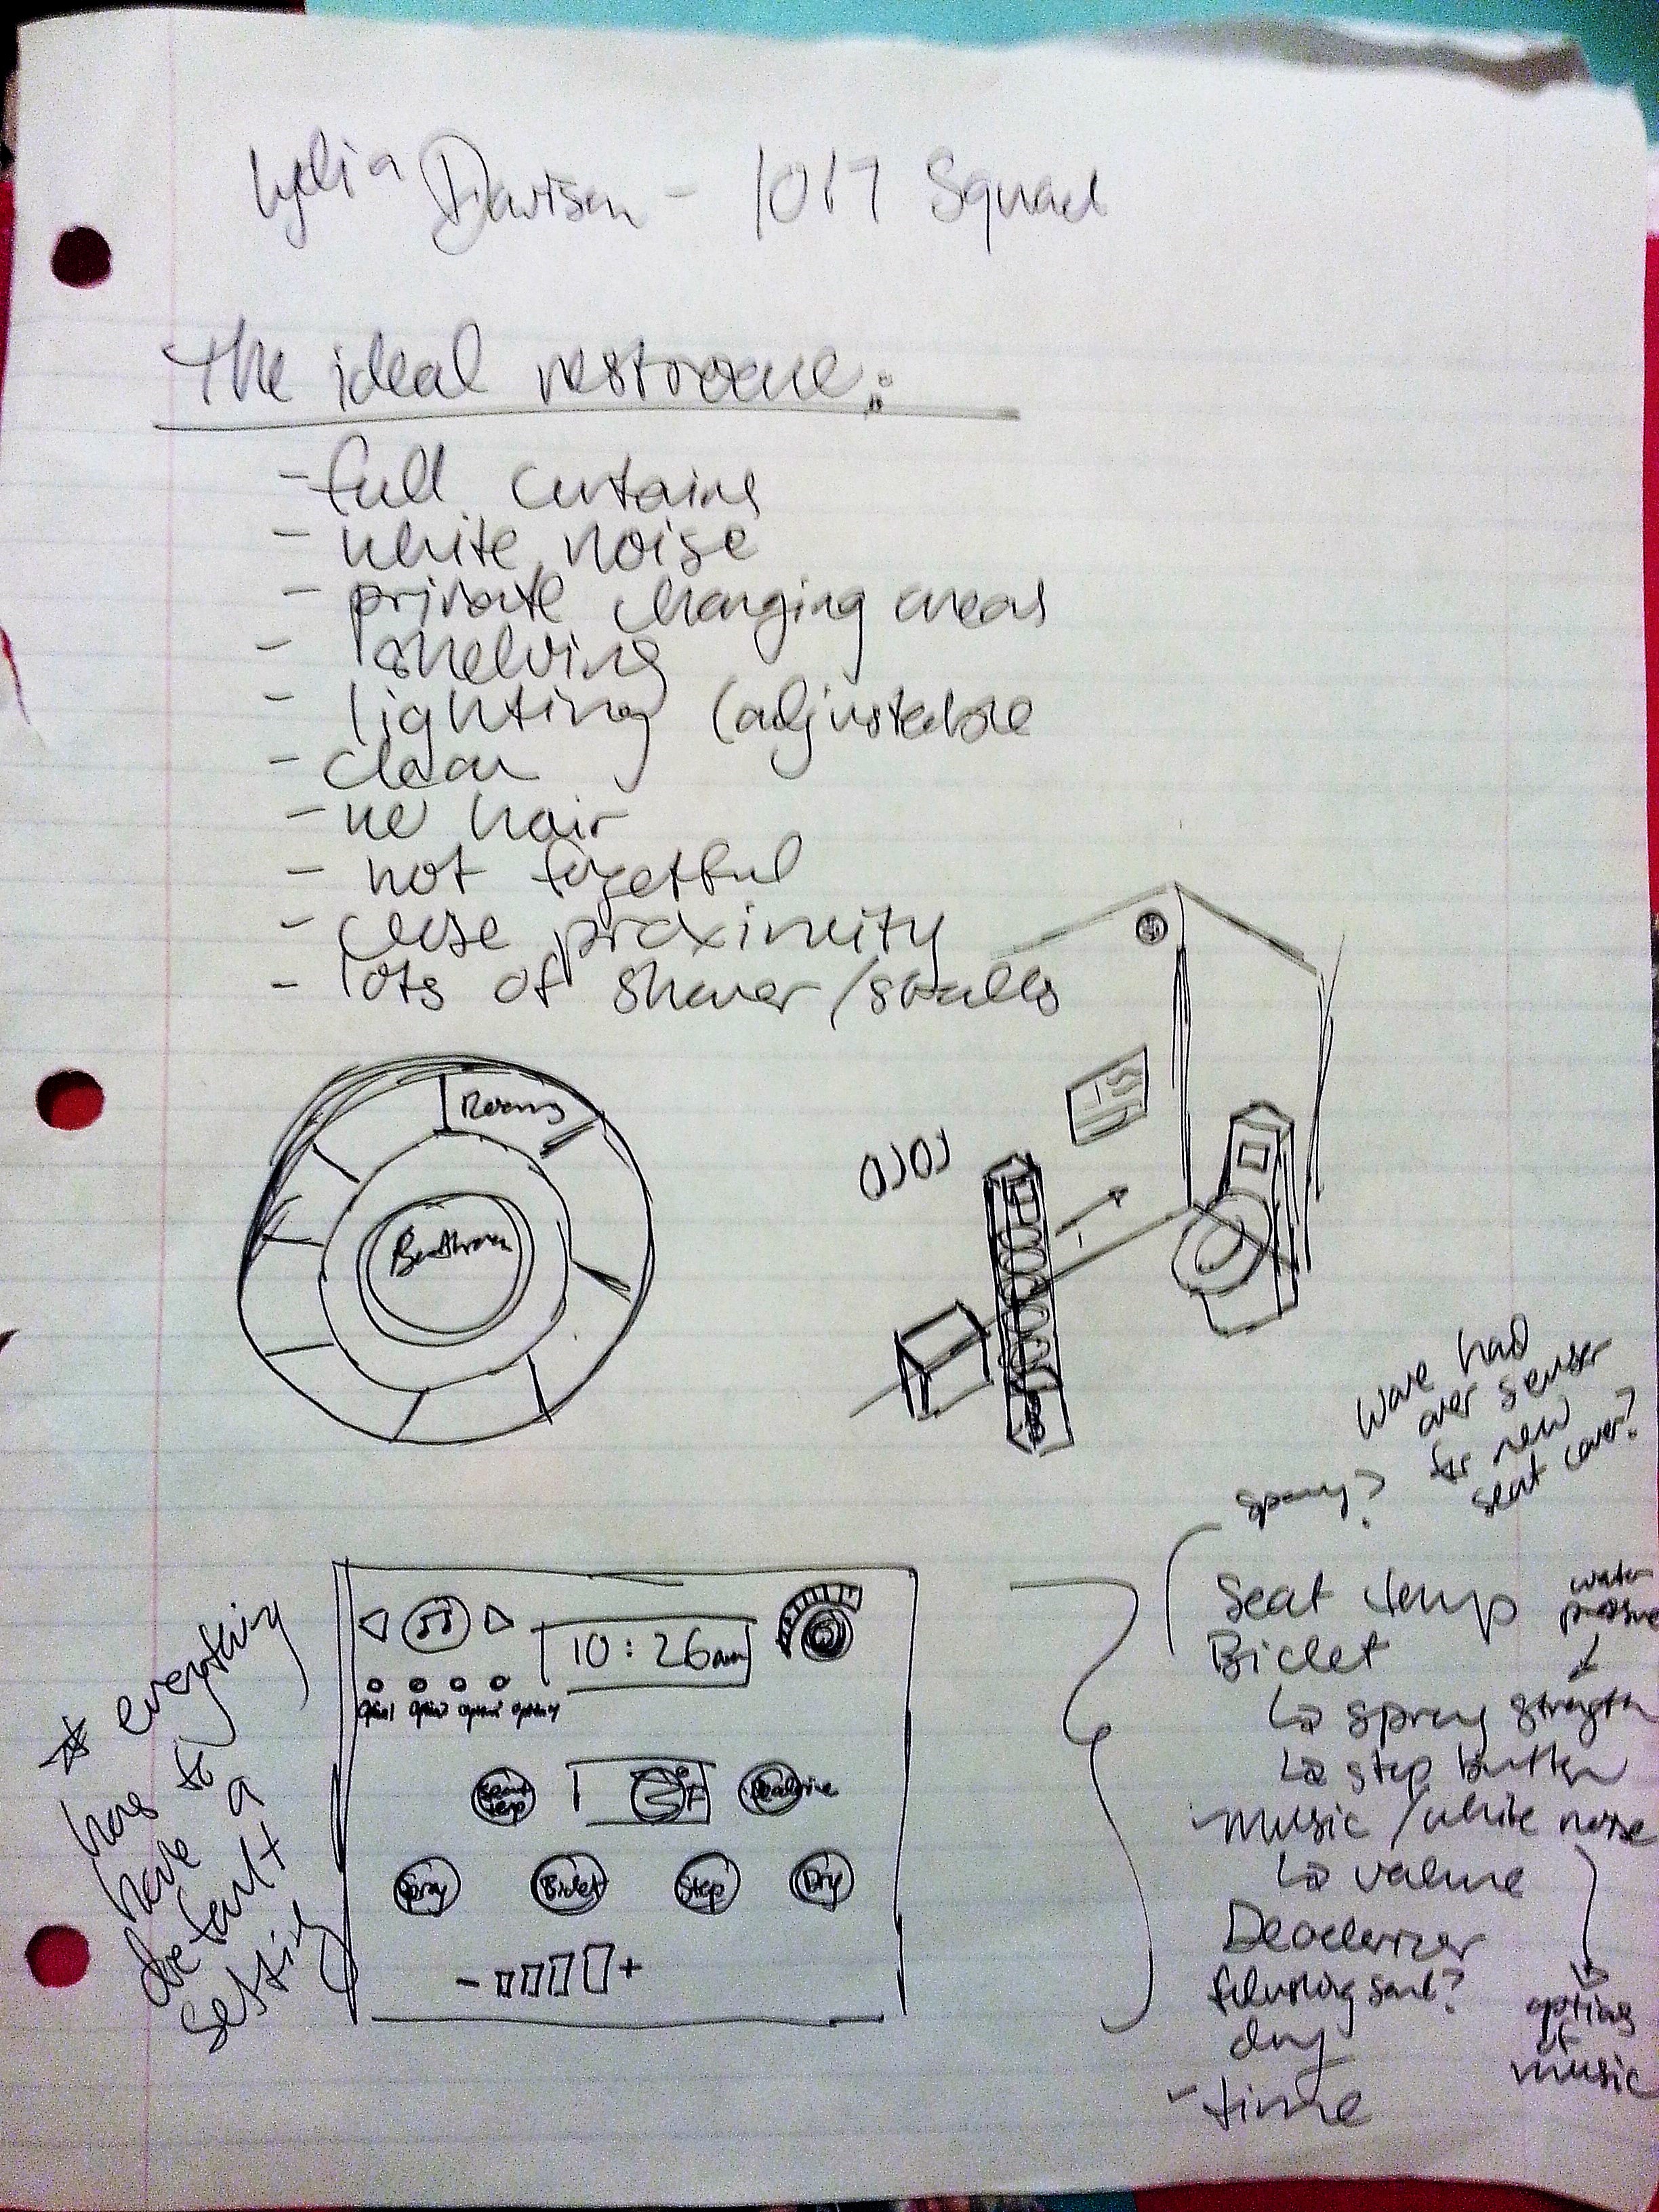 Lydia Davison - 1017 Squad
The ideal restroom:
- full curtains
- white noise
- private changing areas
- shelving
- lighting (adjustable
- clean
- no hair
- not forgetful
- close proximity
- lots of shower/stalls
Rooms
Bathroom
Wave had
over sensor
for new
seat cover?
spray?
* everything
has to
have a
default
setting
10:26am
Seat
temp
°F
Spray
Bidet
Stop
Dry
- +
Seat temp
water
pressure
Bidet
↳ spray strength
↳ stop button
- music / white noise
↳ volume
options
of
music
Deoderizer
flushing sound?
dry
- time